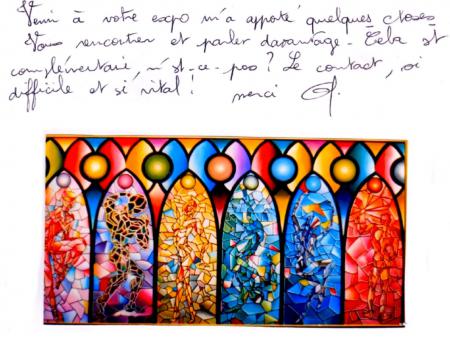 Venir à votre expo m'a apporté quelques choses
Vous rencontrer et parler davantage - Cela est
complémentaire, n'est-ce-pas ? Le contact, si
difficile et si vital ! merci